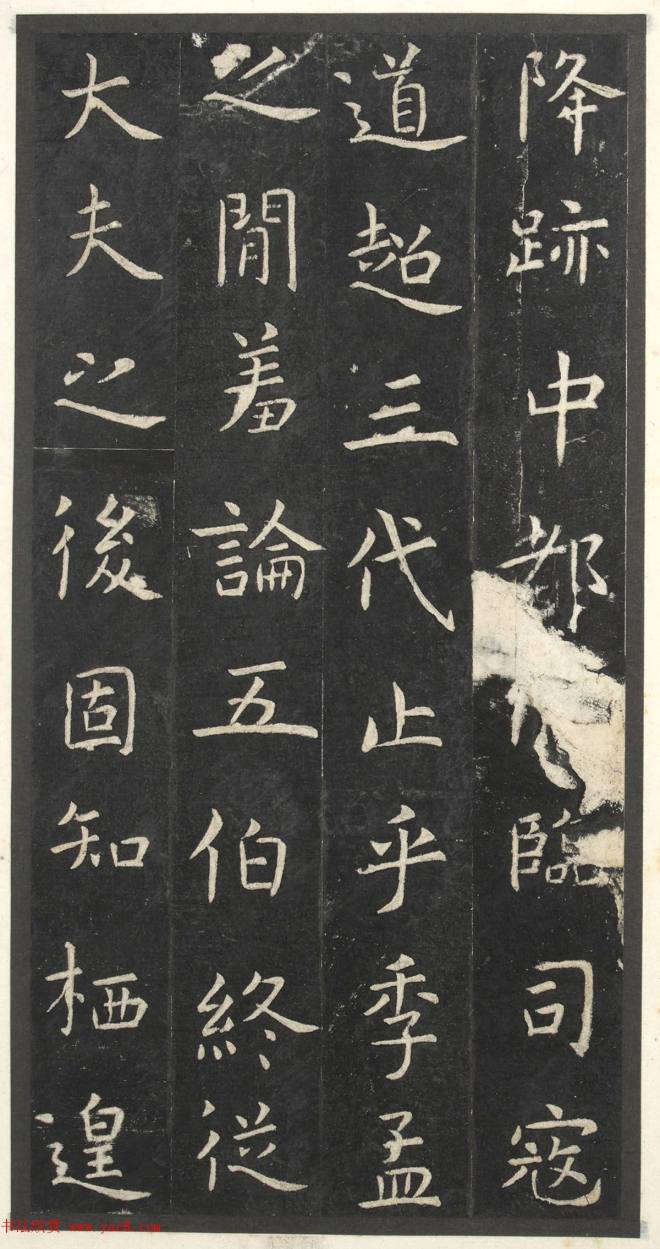 降跡中都俯臨司寇
道超三代止乎季孟
之閒羞論五伯終從
大夫之後固知栖遑
书法欣赏 www.yac8.com